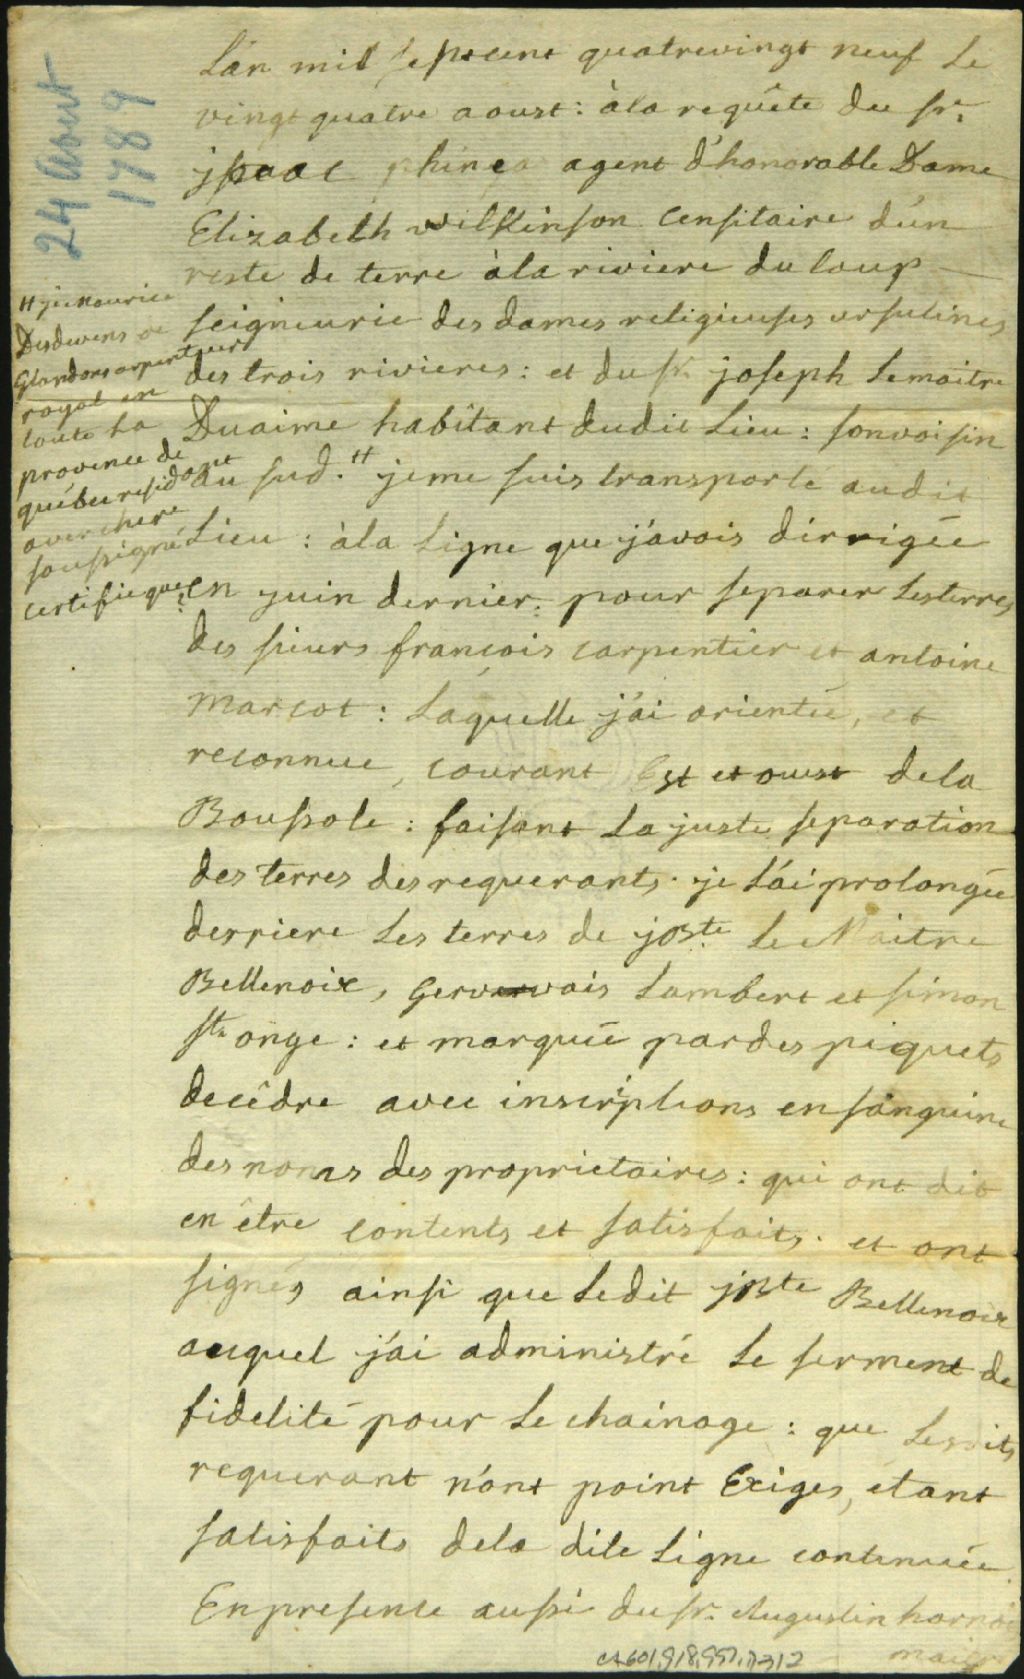 24 Aout
1789
L'an mil sept cent quatrevingt neuf le
vingt quatre aoust: à la requête du sr.
jsaac phineas agent d'honorable Dame
Elizabeth wilkinson Censitaire d'un
reste de terre à la riviere du loup
seigneurie des dames religieuses ursulines
des trois rivieres: et du sr. joseph Lemaitre
Duaime habitant dudit Lieu: son voisin
au sud. # je me suis transporte audit
Lieu: à la Ligne que j'avois dirrigée
en juin dernier: pour separer les terres
des sieurs francois carpentier et antoine
marcot: Laquelle j'ai orientée, et
reconnue, courant Est et ouest de la
Boussole: faisant la juste separation
des terres des requerants. je l'ai prolongée
derriere Les terres de jbste Le Maitre
Bellenoix, Gervais Lambert et simon
st. onge: et marquée par des piquets
de cêdre avec inscriptions en sanguine
des noms des proprietaires: qui ont dit
en être contents et satisfaits. et ont
signés ainsi que ledit jbste Bellenoix
auquel j'ai administré le serment de
fidelité pour le chainage: que lesdits
requerant n'ont point Exiges, étant
satisfaits de la dite Ligne continuée.
En presence aussi du sr. Augustin
# je Maurice
Desdevens de
Glandons arpenteur
royal en
toute La
province de
québec residant
a verchere
soussigné
certifie que:
CA601,918,957,D312